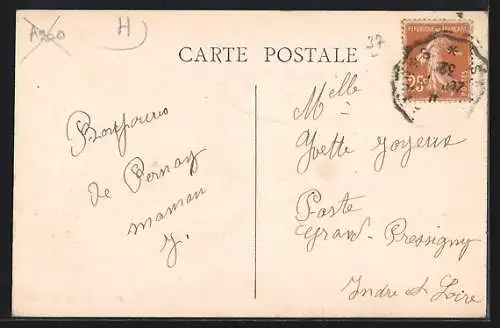 A900
H)
37
CARTE POSTALE
REPUBLIQUE FRANÇAISE
25c
32
Bonjours
de Pernay
maman
Y.
Melle
Yvette Joyeux
Poste
Grand-Pressigny
Indre et Loire